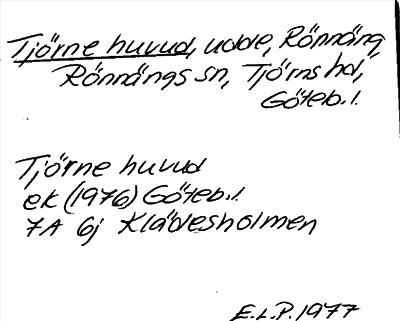 Tjörne huvud, udde, Rönnäng
Rönnängs sn, Tjörns hd,
Göteb. l.
Tjörne huvud
ek (1976) Göteb. l.
7A 6j Klädesholmen
E.L.P. 1977